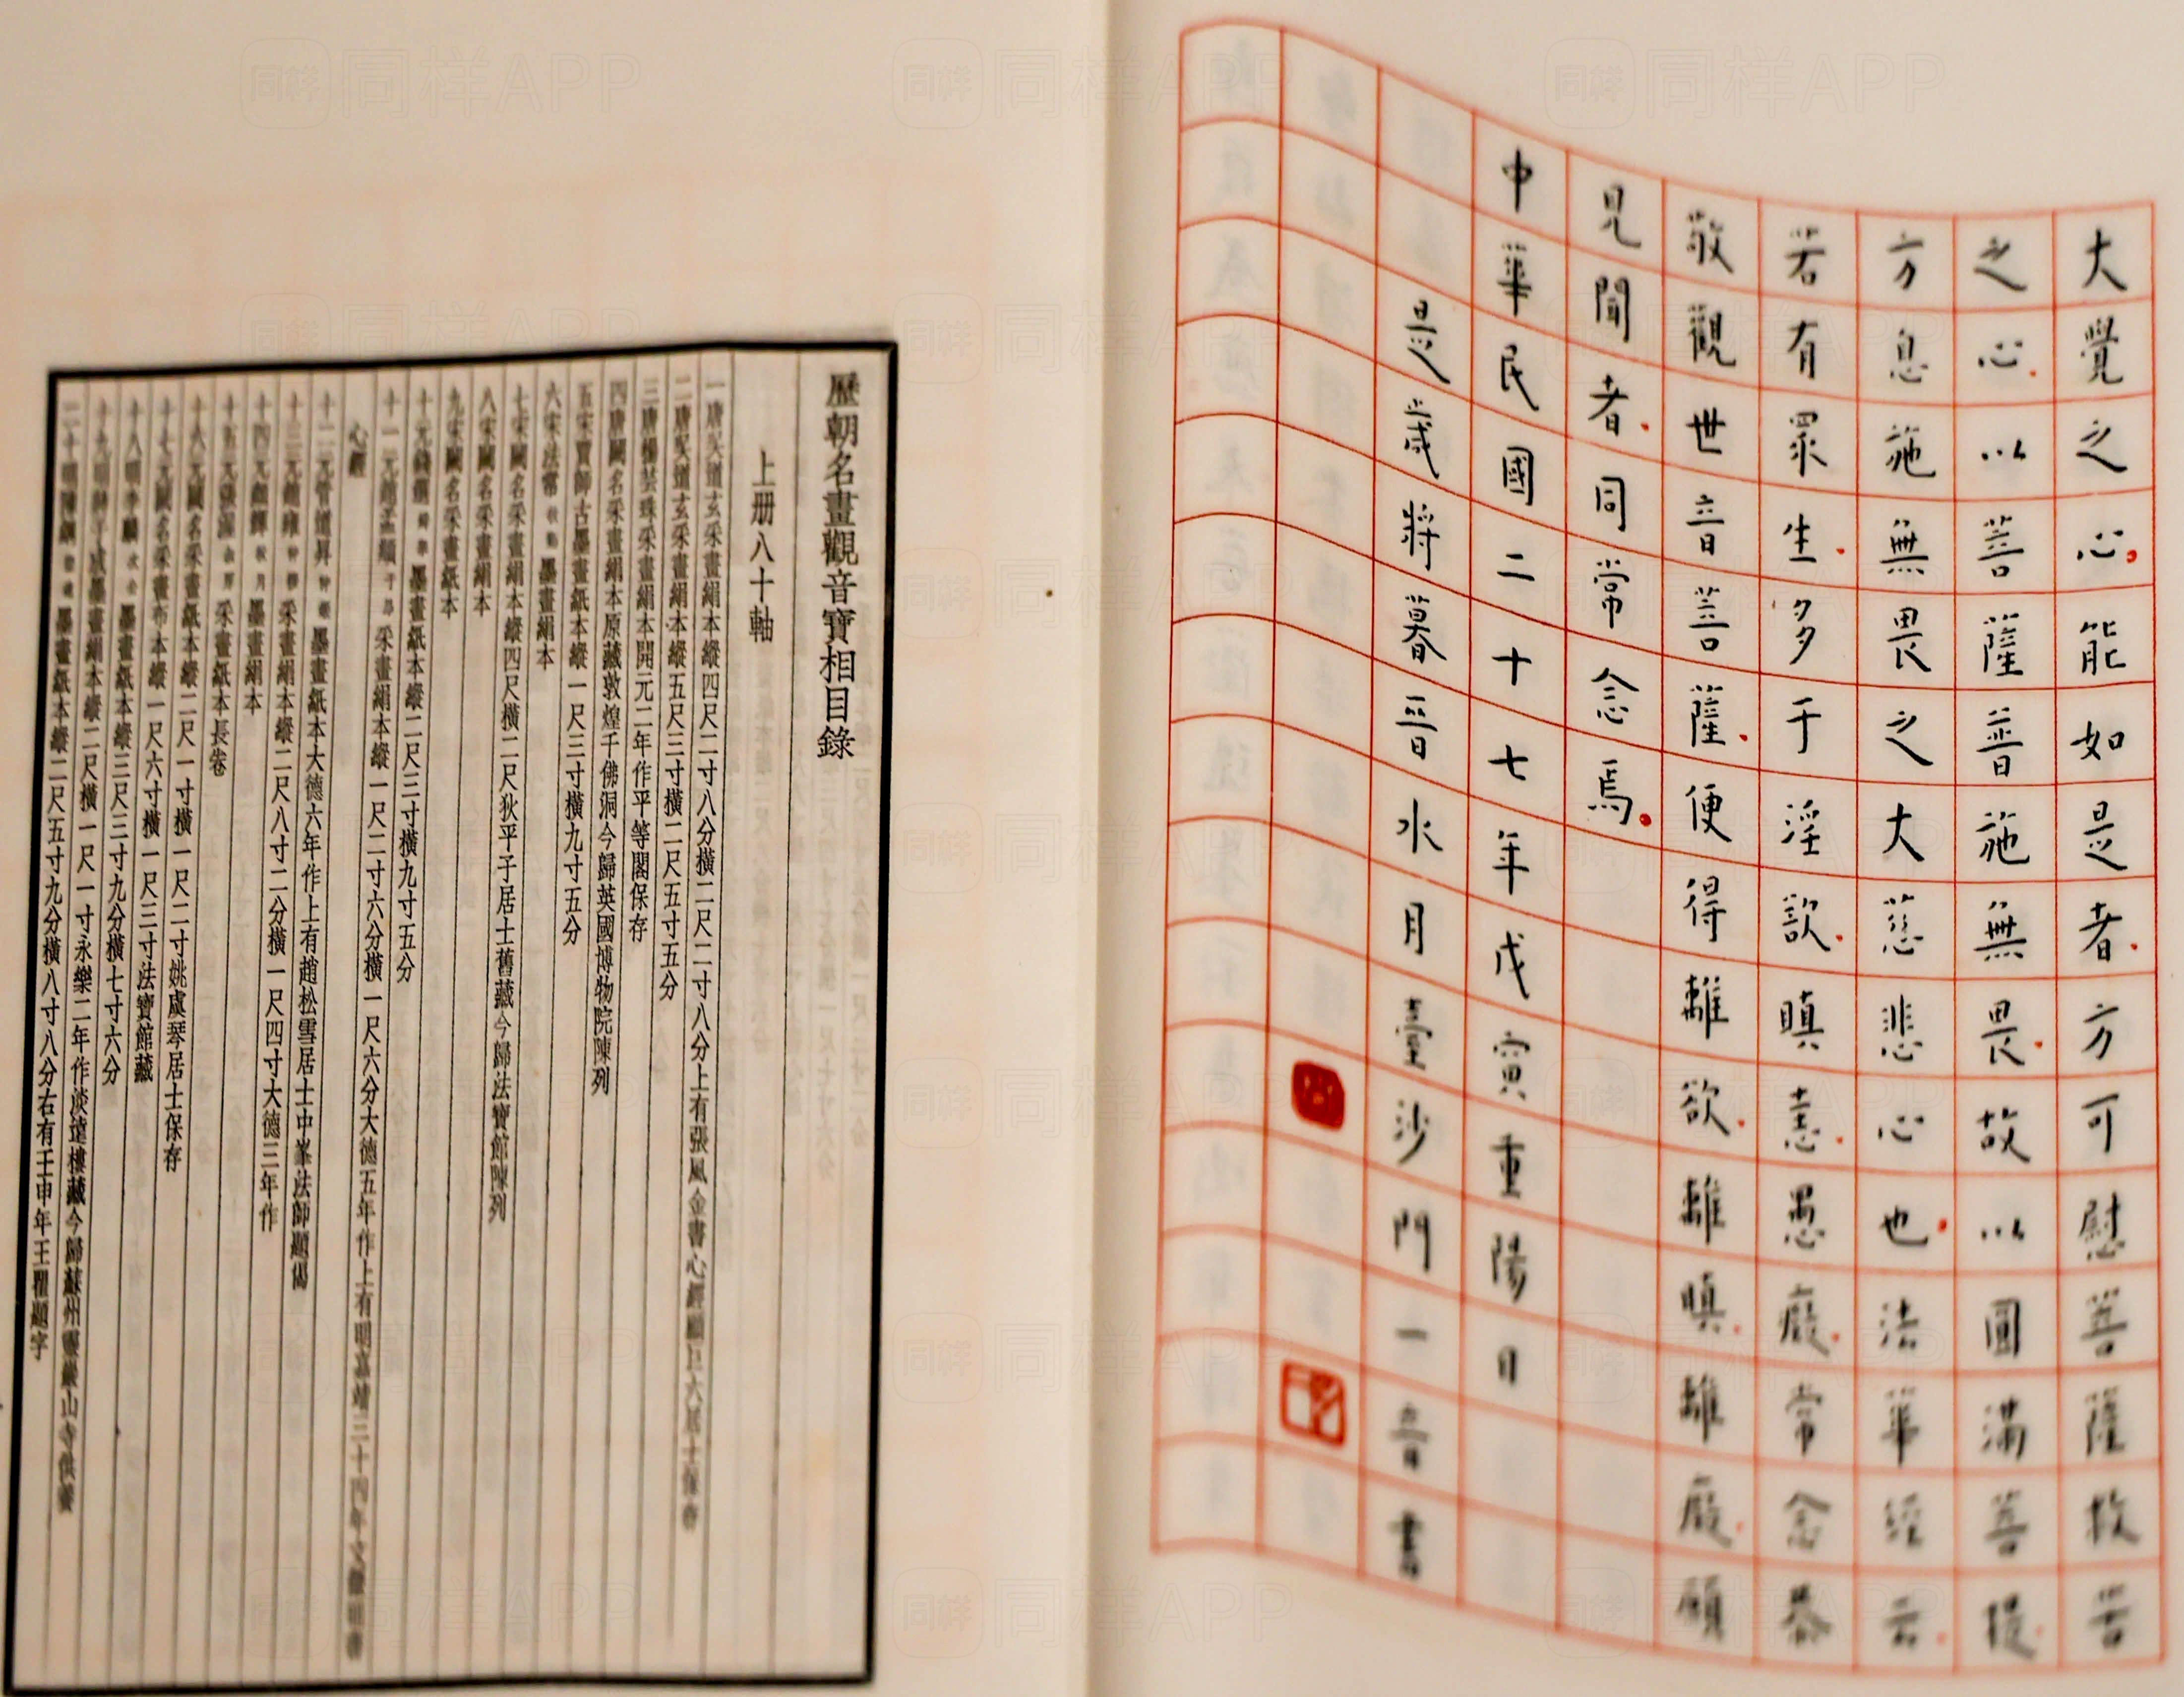 大覺之心能如是者方可慰菩薩救苦
之心以菩薩普施無畏故以圓滿菩提
方息施無畏之大慈悲心也法華經云
若有眾生多于淫欲瞋恚愚癡常念恭
敬觀世音菩薩便得離欲離瞋離癡願
見聞者同常念焉
中華民國二十七年戊寅重陽日
是歲將暮晉水月臺沙門一音書
歷朝名畫觀音寶相目錄
上册八十軸
一唐吳道玄采畫絹本縱四尺二寸八分橫二尺二寸八分上有張風金書心經
二唐吳道玄采畫絹本縱五尺三寸橫二尺五寸五分
三唐楊芸珠采畫絹本開元二年作平等閣保存
四唐闕名采畫絹本原藏敦煌千佛洞今歸英國博物院陳列
五宋賈師古墨畫紙本縱一尺三寸橫九寸五分
六宋法常墨畫絹本
七宋闕名采畫絹本縱四尺橫二尺狄平子居士舊藏今歸法寶館陳列
八宋闕名采畫絹本
九宋闕名采畫紙本
十元錢選墨畫紙本縱二尺三寸橫九寸五分
十一元趙孟頫采畫絹本縱一尺二寸六分橫一尺六分大德五年作上有明嘉靖三十四年文徵明書
心經
十二元管道昇墨畫紙本大德六年作上有趙松雪居士中峯法師題偈
十三元趙雍采畫絹本縱二尺八寸二分橫一尺四寸大德三年作
十四元墨畫絹本
十五元采畫紙本長卷
十六元闕名采畫紙本縱二尺一寸橫一尺二寸姚虞琴居士保存
十七元闕名采畫布本縱一尺六寸橫一尺三寸法寶館藏
十八明李麟墨畫紙本縱三尺三寸九分橫七寸六分
十九明墨畫絹本縱二尺橫一尺一寸永樂二年作淡遠樓藏今歸蘇州靈巖山寺供養
二十明陳墨畫紙本縱二尺五寸九分橫八寸八分右有壬申年王題字